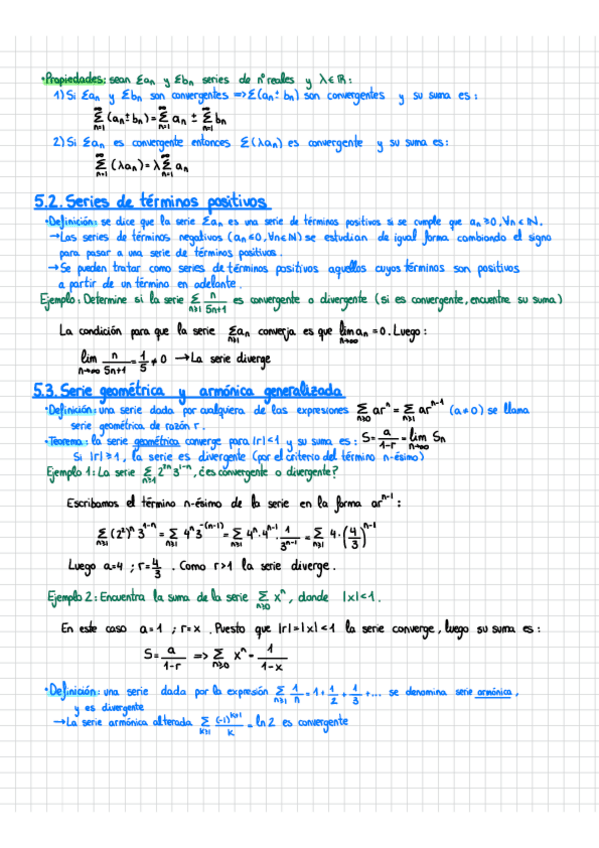 ·Propiedades: sean Σan y Σbn series de nº reales y λ∈ℝ:
1) Si Σan y Σbn son convergentes => Σ(an ± bn) son convergentes y su suma es:
∞Σn=1 (an ± bn) = ∞Σn=1 an ± ∞Σn=1 bn
2) Si Σan es convergente entonces Σ(λan) es convergente y su suma es:
∞Σn=1 (λan) = λ ∞Σn=1 an
5.2. Series de términos positivos
·Definición: se dice que la serie Σan es una serie de términos positivos si se cumple que an ≥ 0, ∀n∈ℕ.
→Las series de términos negativos (an ≤ 0, ∀n∈ℕ) se estudian de igual forma cambiando el signo
para pasar a una serie de términos positivos.
→Se pueden tratar como series de términos positivos aquellas cuyos términos son positivos
a partir de un término en adelante.
Ejemplo: Determine si la serie Σn≥1 n/(5n+1) es convergente o divergente (si es convergente, encuentre su suma)
La condición para que la serie Σn≥1 an converja es que lim n→∞ an = 0. Luego:
lim n→∞ n/(5n+1) = 1/5 ≠ 0 →La serie diverge
5.3. Serie geométrica y armónica generalizada
·Definición: una serie dada por cualquiera de las expresiones Σn≥0 ar^n = Σn≥1 ar^(n-1) (a≠0) se llama
serie geométrica de razón r.
·Teorema: la serie geométrica converge para |r|<1 y su suma es: S = a/(1-r) = lim n→∞ Sn
Si |r|≥1, la serie es divergente (por el criterio del término n-ésimo)
Ejemplo 1: La serie Σn≥1 2^(2n) 3^(1-n), ¿es convergente o divergente?
Escribamos el término n-ésimo de la serie en la forma ar^(n-1):
Σn≥1 (2²)^n 3^(1-n) = Σn≥1 4^n 3^(-(n-1)) = Σn≥1 4^n·4^(-1)·1/3^(n-1) = Σn≥1 4·(4/3)^(n-1)
Luego a=4 ; r=4/3 . Como r>1 la serie diverge.
Ejemplo 2: Encuentra la suma de la serie Σn≥0 x^n, donde |x|<1.
En este caso a=1 ; r=x . Puesto que |r|=|x|<1 la serie converge, luego su suma es:
S = a/(1-r) => Σn≥0 x^n = 1/(1-x)
·Definición: una serie dada por la expresión Σn≥1 1/n = 1 + 1/2 + 1/3 + ... se denomina serie armónica,
y es divergente
→La serie armónica alterada Σk≥1 (-1)^(k+1)/k = ln2 es convergente